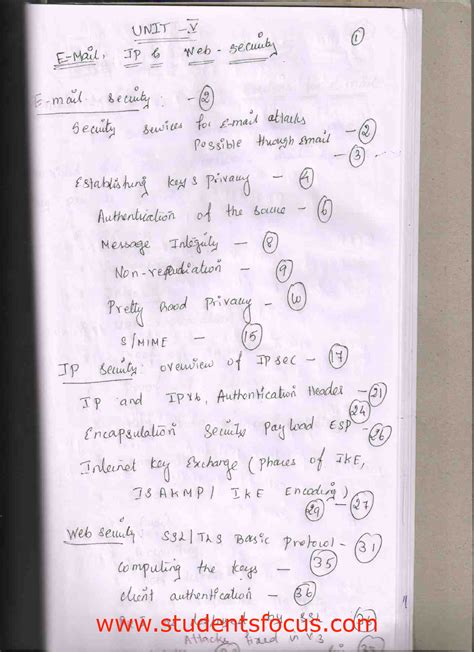 UNIT - V
①
E-Mail, IP & Web - Security
E-mail security : - ②
Security services for E-mail attacks
Possible through Email - ②
- ③
Establishing keys privacy - ④
Authentication of the source - ⑥
Message Integrity - ⑧
Non-repudiation - ⑨
Pretty Good Privacy - ⑩
S/MIME - ⑮
IP Security: overview of IPsec - ⑰
IP and IPV6, Authentication Header - ㉑
㉔
Encapsulation Security Payload ESP - ㉖
Internet Key Exchange (Phases of IKE,
ISAKMP / IKE Encoding)
㉙ - ㉗
Web Security SSL/TLS Basic protocol - ㉛
computing the keys - ㉟
client authentication - ㊱
www.studentsfocus.com
Attacks fixed in V3